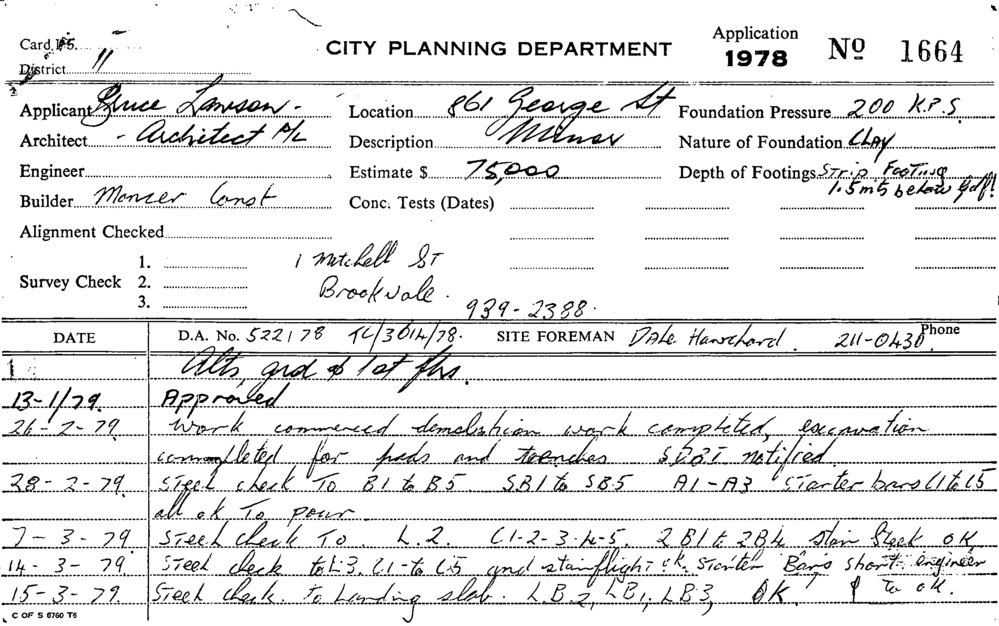 Card
District 11
CITY PLANNING DEPARTMENT
Application
1978
No 1664
Applicant Bruce Lawson -
Location 861 George St
Foundation Pressure 200 K.P.S.
Architect - Architect P/L
Description Minor
Nature of Foundation CLAY
Engineer
Estimate $ 75,000
Depth of Footings STRIP FOOTING
1.5mts below
Builder Const
Conc. Tests (Dates)
Alignment Checked
Survey Check 1.
2.
3.
1 Mitchell ST
Brookvale.
939-2388.
DATE
D.A. No. 522178 TC/3014/78. SITE FOREMAN Dale 211-0430 Phone
Alts, grd & 1st flrs.
13-1/79. Approved
26-2-79. Work commenced demolition work completed, excavation
completed for pads and trenches notified.
28-2-79. Steel check To B1 to B5. SB1 to SB5 A1-A3 Starter bars C1 to C5
all ok To pour.
7-3-79. Steel check To. L.2. C1-2-3-4-5. 2B1 to 2B4 stair Steel OK
14-3-79. Steel check to L3, C1-to C5 and stairflight ok. Starter Bars short engineer
to ok.
15-3-79. Steel check. To Landing slab. LB2, LB1, LB3, OK
C OF S 6760 T6